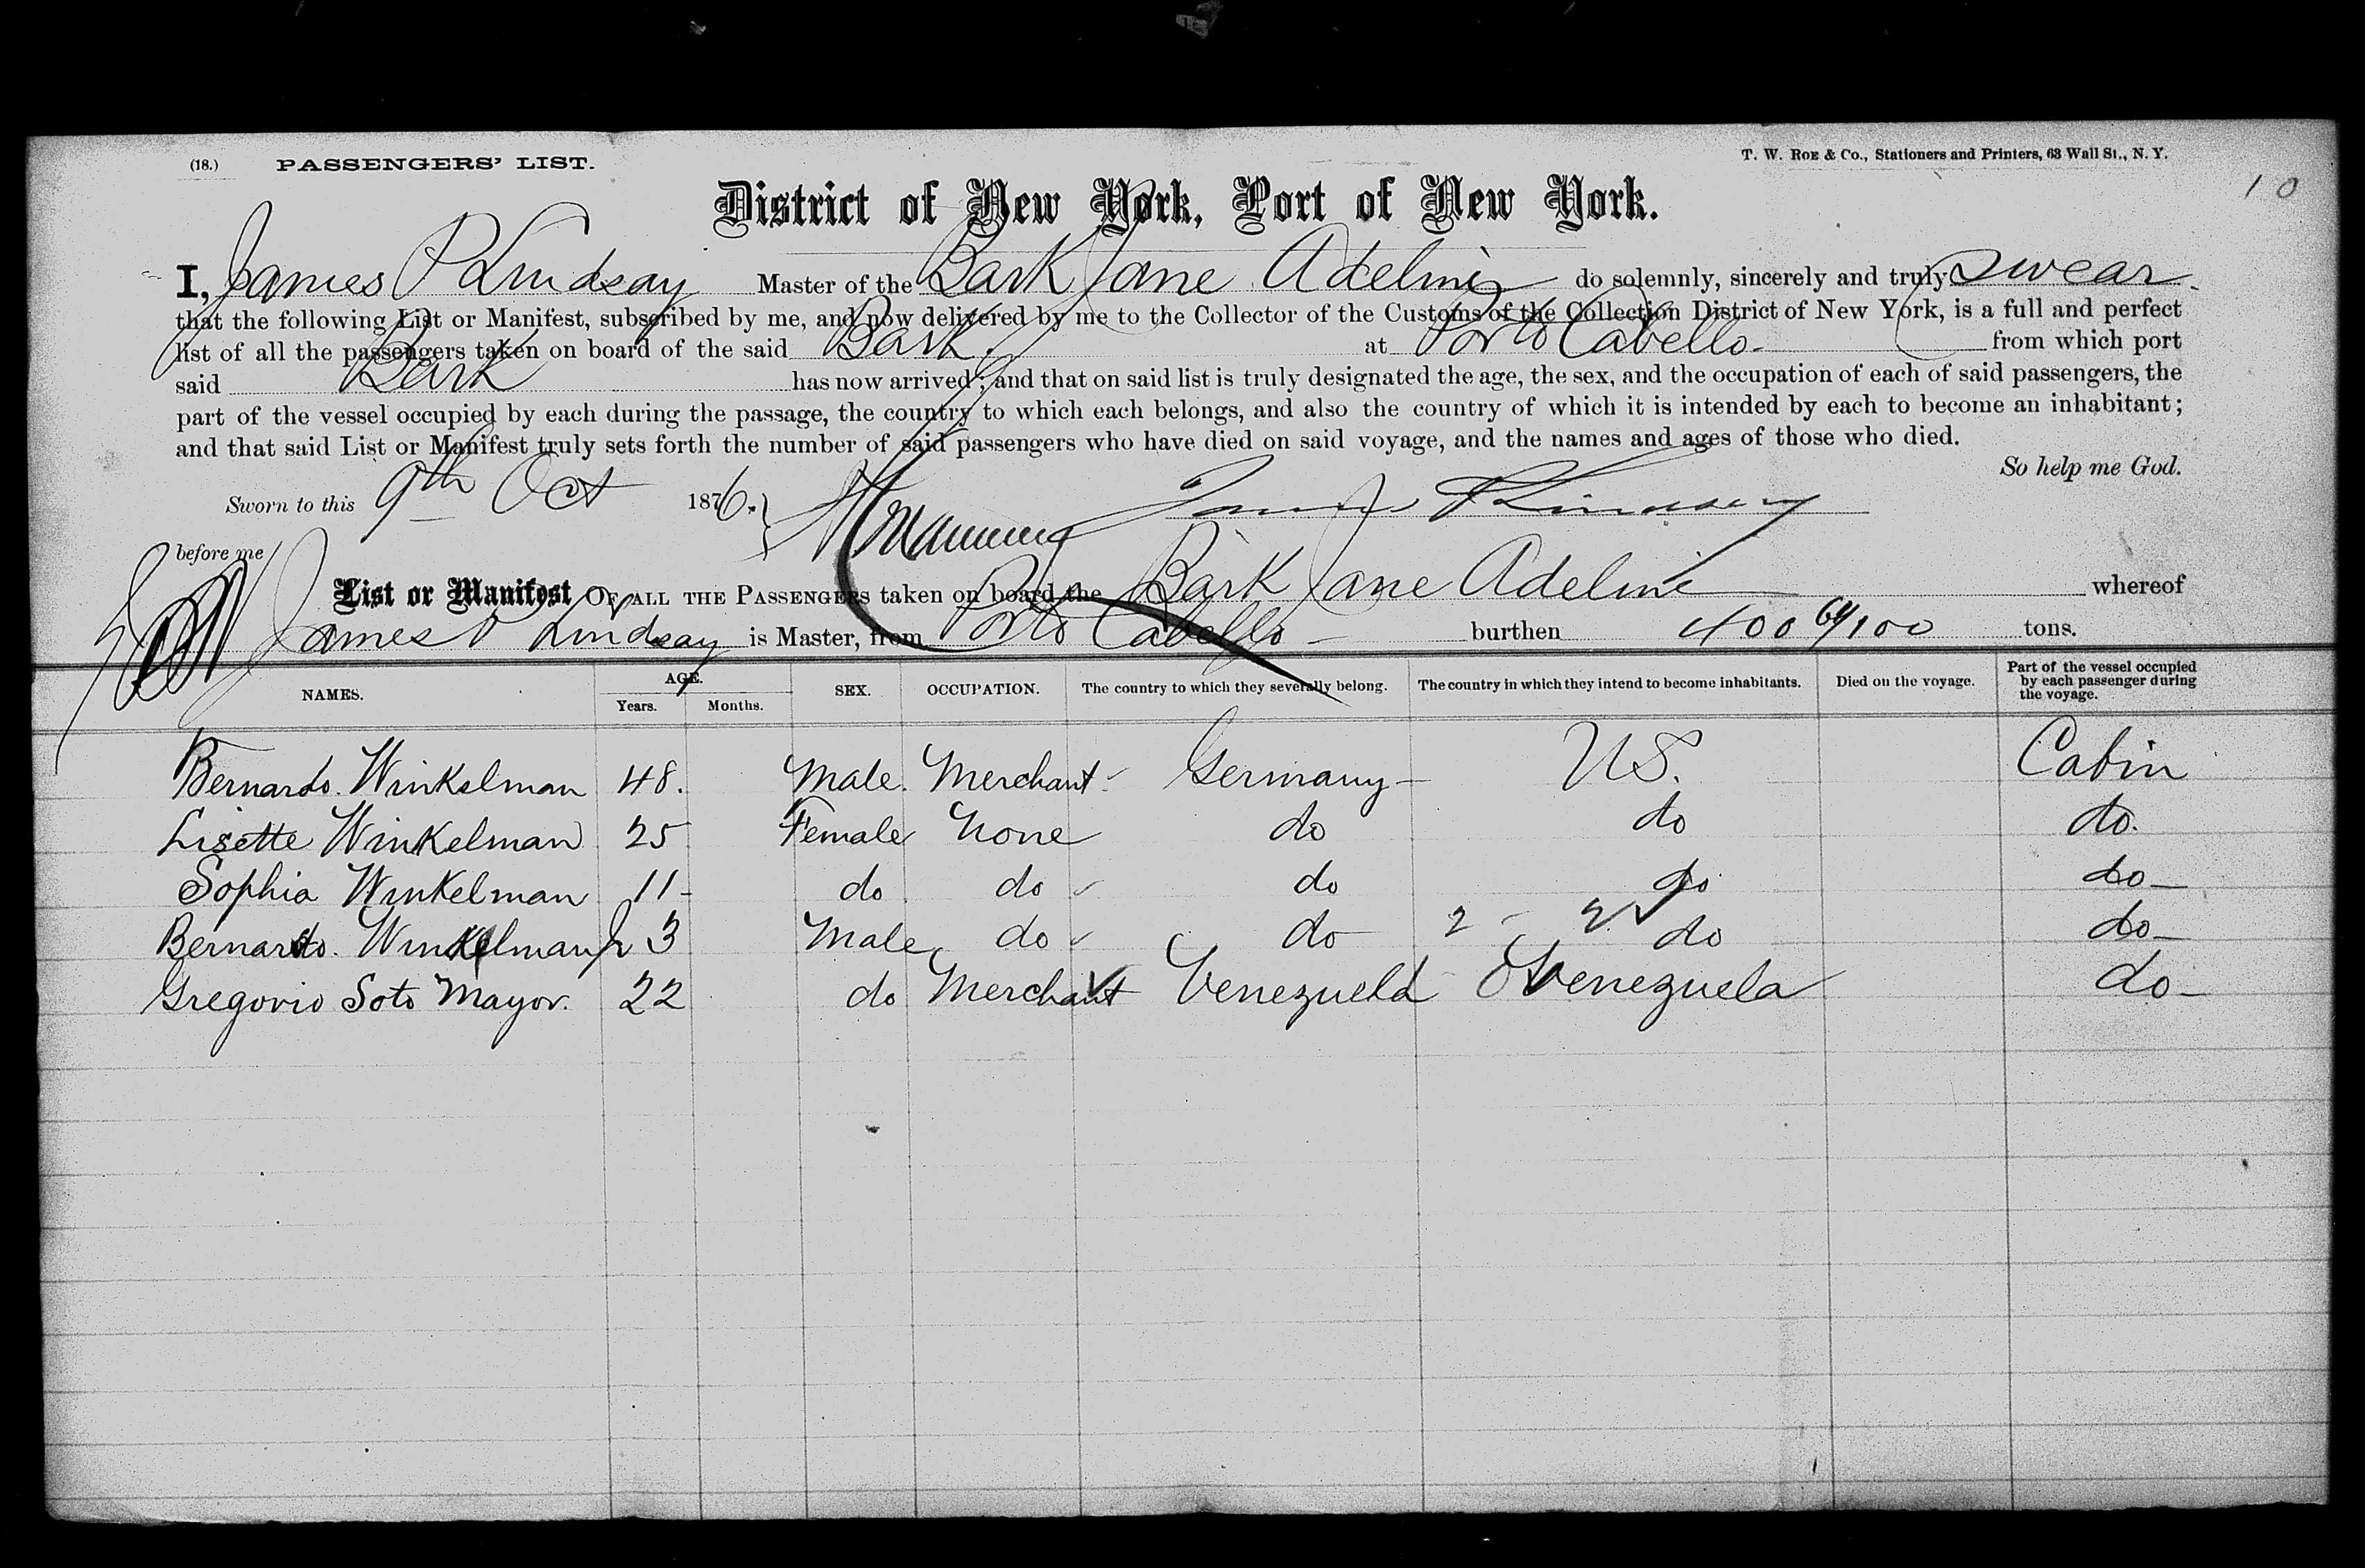 (18.) PASSENGERS' LIST.
T. W. ROE & Co., Stationers and Printers, 63 Wall St., N. Y.
10
District of New York, Port of New York.
I, James P Lindsay Master of the Bark Jane Adeline do solemnly, sincerely and truly swear
that the following List or Manifest, subscribed by me, and now delivered by me to the Collector of the Customs of the Collection District of New York, is a full and perfect
list of all the passengers taken on board of the said Bark at Porto Cabello from which port
said Bark has now arrived; and that on said list is truly designated the age, the sex, and the occupation of each of said passengers, the
part of the vessel occupied by each during the passage, the country to which each belongs, and also the country of which it is intended by each to become an inhabitant;
and that said List or Manifest truly sets forth the number of said passengers who have died on said voyage, and the names and ages of those who died.
So help me God.
Sworn to this 9th Oct 1876. James P Lindsay
before me
List or Manifest OF ALL THE PASSENGERS taken on board the Bark Jane Adeline whereof
James P Lindsay is Master, from Porto Cabello burthen 400 64/100 tons.
NAMES. AGE. Years. Months. SEX. OCCUPATION. The country to which they severally belong. The country in which they intend to become inhabitants. Died on the voyage. Part of the vessel occupied by each passenger during the voyage.
Bernardo. Winkelman 48. Male. Merchant Germany U.S. Cabin
Lisette Winkelman 25 Female None do do do.
Sophia Winkelman 11 do do do do do
Bernardo. Winkelman Jr 3 Male do do 2 2 do do
Gregorio Soto Mayor. 22 do Merchant Venezuela Venezuela do